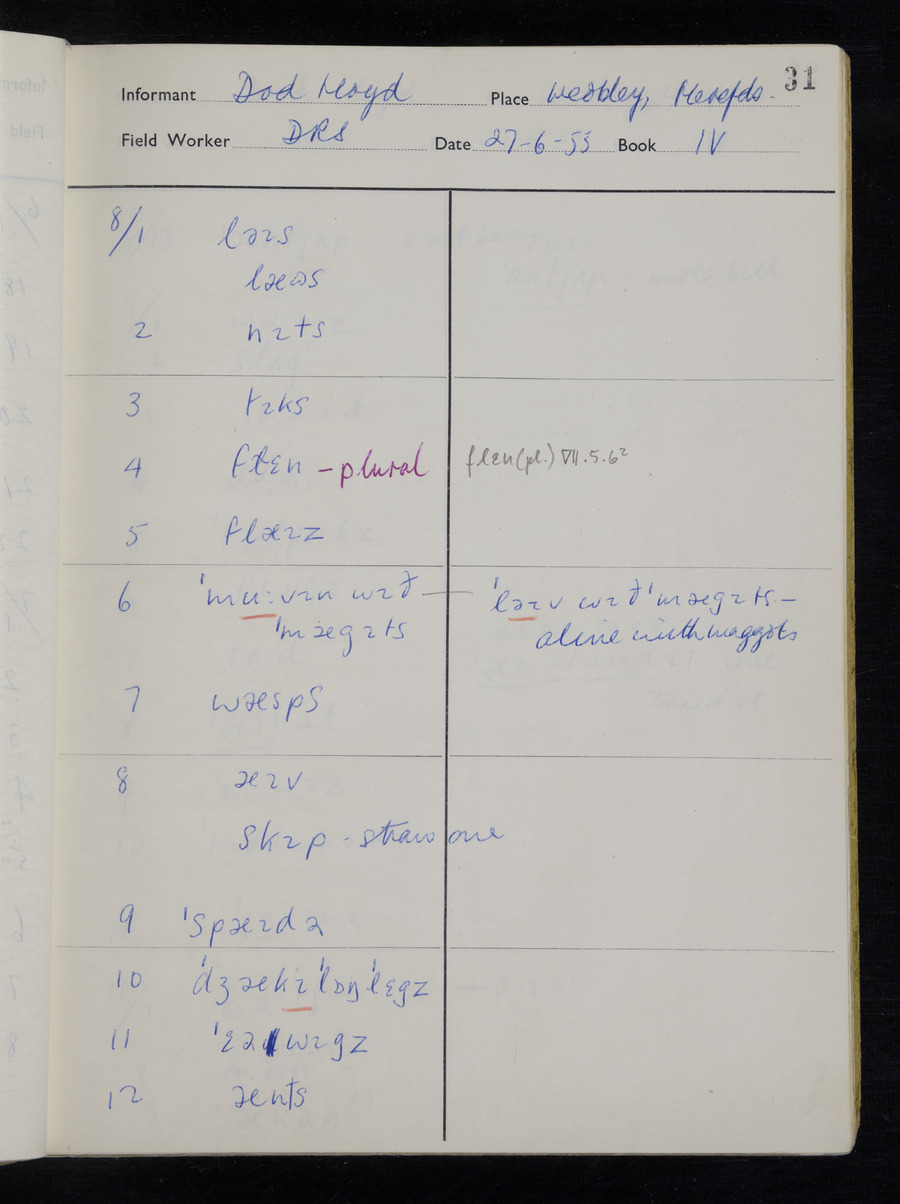 31
Informant Dod Lloyd Place Weobley, Herefds.
Field Worker DRS Date 27-6-55 Book IV
8/1 ləɪs
læʊs
2 nɪts
3 tɪks
4 flɛn – plural flɛn (pl.) VII.5.6²
5 flæɪz
6 ˈmuːvɪn wɪð — ˈləɪv wɪð ˈmægɪts –
ˈmægɪts alive with maggots
7 wæsps
8 æɪv
skɪp - straw one
9 ˈspæɪdə
10 ˈdʒækɪ ˈlɒŋ ˈlɛgz
11 ˈɛəwɪgz
12 ænts